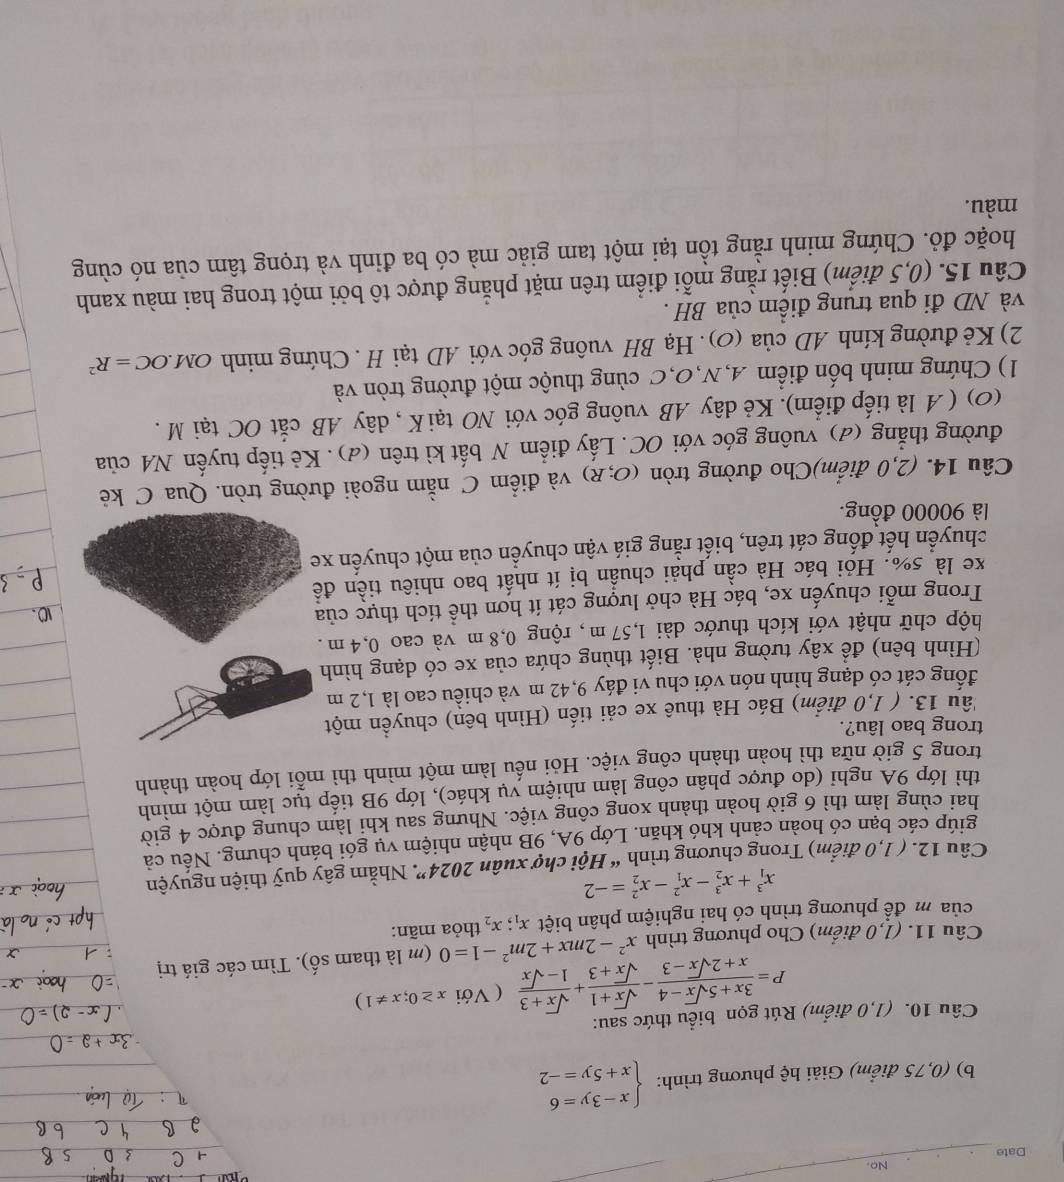 Date No.
b) (0,75 điểm) Giải hệ phương trình: { x − 3y = 6
x + 5y = −2
Câu 10. (1,0 điểm) Rút gọn biểu thức sau:
P = (3x + 5√x − 4)/(x + 2√x − 3) − (√x + 1)/(√x + 3) + (√x + 3)/(1 − √x) ( Với x ≥ 0; x ≠ 1)
Câu 11. (1,0 điểm) Cho phương trình x² − 2mx + 2m² − 1 = 0 (m là tham số). Tìm các giá trị
của m để phương trình có hai nghiệm phân biệt x₁; x₂ thỏa mãn:
x₁³ + x₂³ − x₁² − x₂² = −2
Câu 12. ( 1,0 điểm) Trong chương trình “ Hội chợ xuân 2024”. Nhằm gây quỹ thiện nguyện
giúp các bạn có hoàn cảnh khó khăn. Lớp 9A, 9B nhận nhiệm vụ gói bánh chưng. Nếu cả
hai cùng làm thì 6 giờ hoàn thành xong công việc. Nhưng sau khi làm chung được 4 giờ
thì lớp 9A nghỉ (do được phân công làm nhiệm vụ khác), lớp 9B tiếp tục làm một mình
trong 5 giờ nữa thì hoàn thành công việc. Hỏi nếu làm một mình thì mỗi lớp hoàn thành
trong bao lâu?.
âu 13. ( 1,0 điểm) Bác Hà thuê xe cải tiến (Hình bên) chuyển một
đống cát có dạng hình nón với chu vi đáy 9,42 m và chiều cao là 1,2 m
(Hình bên) để xây tường nhà. Biết thùng chứa của xe có dạng hình
hộp chữ nhật với kích thước dài 1,57 m, rộng 0,8 m và cao 0,4 m .
Trong mỗi chuyến xe, bác Hà chở lượng cát ít hơn thể tích thực của
xe là 5%. Hỏi bác Hà cần phải chuẩn bị ít nhất bao nhiêu tiền để
chuyển hết đống cát trên, biết rằng giá vận chuyển của một chuyến xe
là 90000 đồng.
Câu 14. (2,0 điểm)Cho đường tròn (O;R) và điểm C nằm ngoài đường tròn. Qua C kẻ
đường thẳng (d) vuông góc với OC. Lấy điểm N bất kì trên (d). Kẻ tiếp tuyến NA của
(O) ( A là tiếp điểm). Kẻ dây AB vuông góc với NO tại K , dây AB cắt OC tại M .
1) Chứng minh bốn điểm A,N,O,C cùng thuộc một đường tròn và
2) Kẻ đường kính AD của (O). Hạ BH vuông góc với AD tại H . Chứng minh OM.OC = R²
và ND đi qua trung điểm của BH .
Câu 15. (0,5 điểm) Biết rằng mỗi điểm trên mặt phẳng được tô bởi một trong hai màu xanh
hoặc đỏ. Chứng minh rằng tồn tại một tam giác mà có ba đỉnh và trọng tâm của nó cùng
màu.
1 C 3 D 5 B
2 B 4 C 6 B
: Tự luận.
3x + 2 = 0
(x − 2) = 0
= 0 hoặc x −
= 1 x
hpt có no là
hoặc x =
10.
P = 3